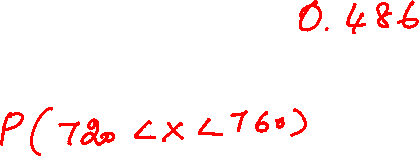 0.486
P(720 < x < 760)